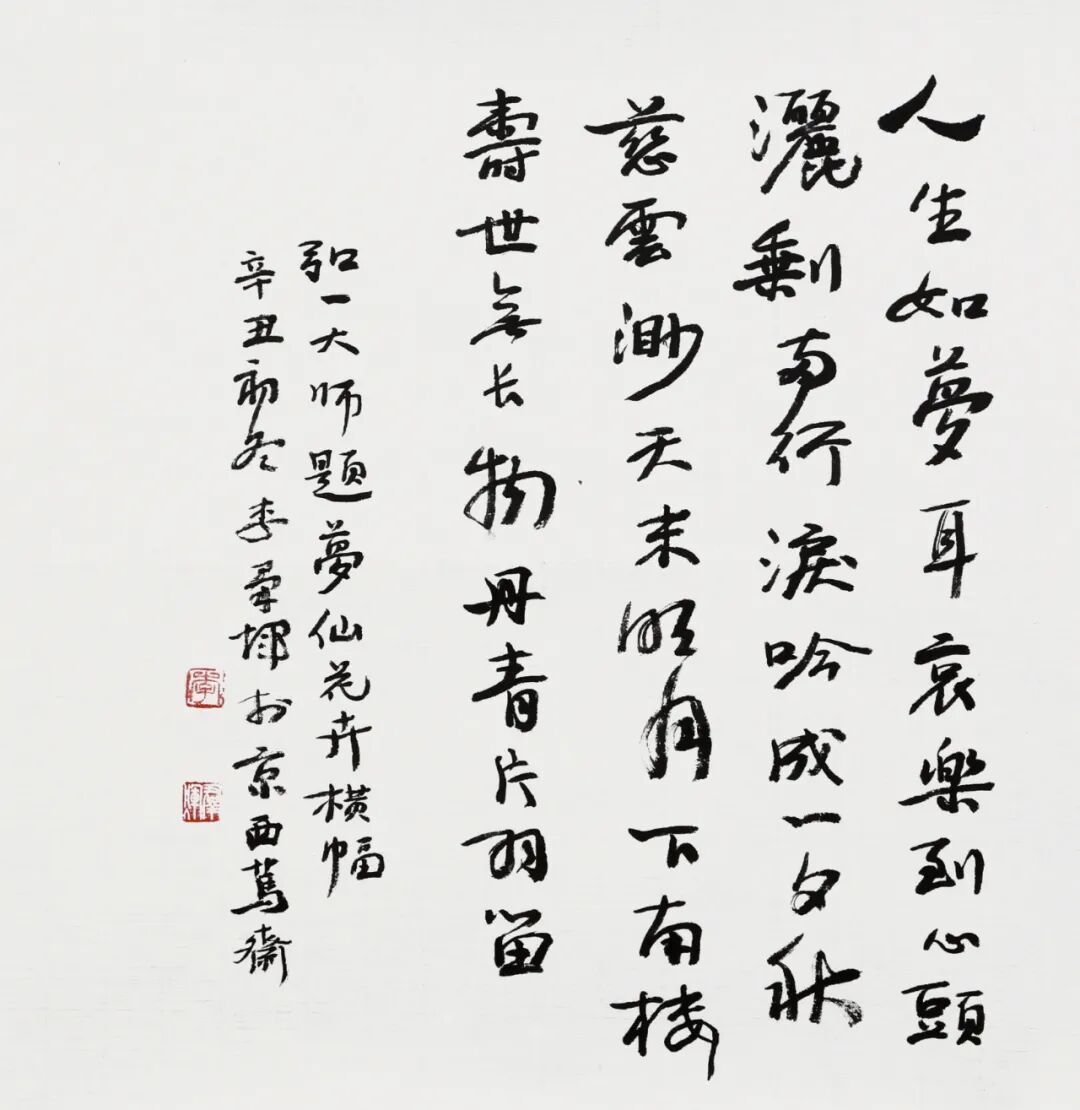 人生如夢耳哀樂到心頭
灑剩兩行淚吟成一夕秋
慈雲渺天末明月下南楼
壽世無长物丹青片羽留
弘一大师题夢仙花卉横幅
辛丑初冬李羣於京西齋
李